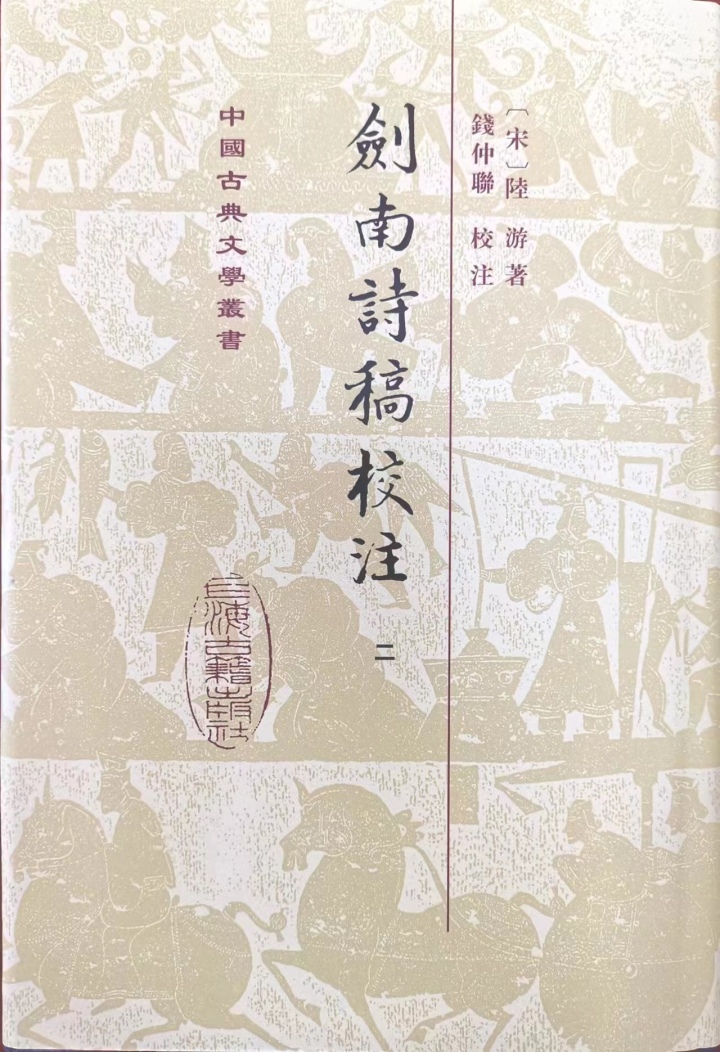 〔宋〕陸游著
錢仲聯 校注
劍南詩稿校注 二
中國古典文學叢書
上海古籍出版社